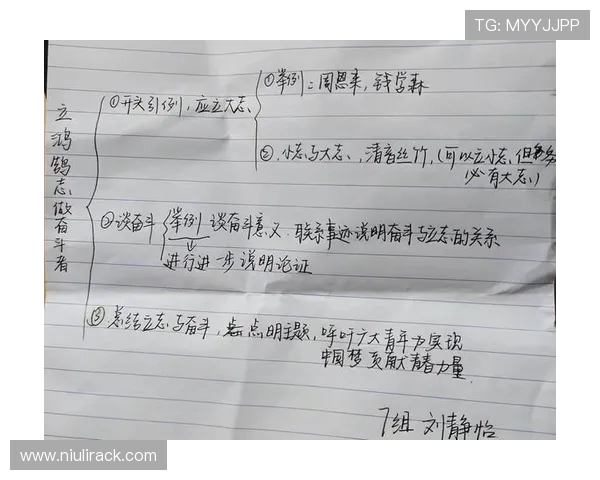 TG: MYYJJPP
立鸿鹄志,做奋斗者
①开头引例,应立大志
①举例:周恩来,钱学森
②.小志与大志,清音丝竹,(可以立小志,但
必有大志)
②谈奋斗
举例 谈奋斗意义.联系事迹说明奋斗与立志的关系
进行进一步说明论证
③总结立志与奋斗,点明主题,呼吁广大青年为实现
中国梦贡献青春力量.
7组 刘静怡
www.niulirack.com